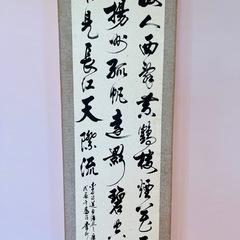 人西辞黄鶴樓煙花三
揚州孤帆遠影碧空
見長江天際流